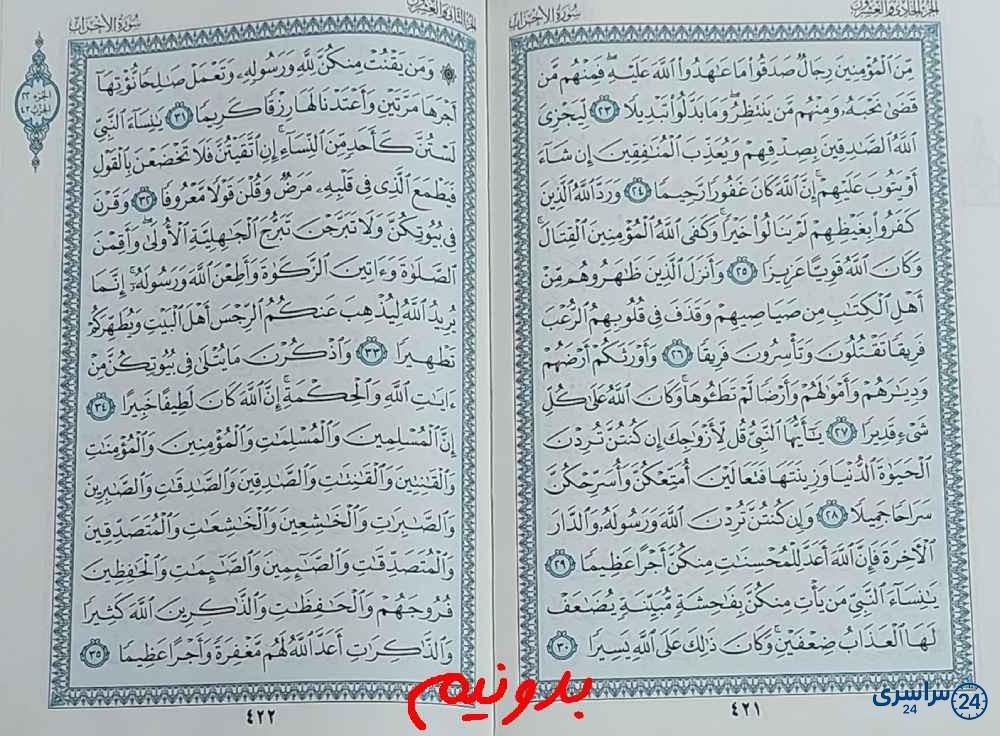 الجزء الحادي والعشرون
سورة الأحزاب
مِّنَ ٱلْمُؤْمِنِينَ رِجَالٌ صَدَقُوا۟ مَا عَٰهَدُوا۟ ٱللَّهَ عَلَيْهِ ۖ فَمِنْهُم مَّن
قَضَىٰ نَحْبَهُۥ وَمِنْهُم مَّن يَنتَظِرُ ۖ وَمَا بَدَّلُوا۟ تَبْدِيلًا ٢٣ لِّيَجْزِىَ
ٱللَّهُ ٱلصَّٰدِقِينَ بِصِدْقِهِمْ وَيُعَذِّبَ ٱلْمُنَٰفِقِينَ إِن شَآءَ
أَوْ يَتُوبَ عَلَيْهِمْ ۚ إِنَّ ٱللَّهَ كَانَ غَفُورًا رَّحِيمًا ٢٤ وَرَدَّ ٱللَّهُ ٱلَّذِينَ
كَفَرُوا۟ بِغَيْظِهِمْ لَمْ يَنَالُوا۟ خَيْرًا ۚ وَكَفَى ٱللَّهُ ٱلْمُؤْمِنِينَ ٱلْقِتَالَ ۚ
وَكَانَ ٱللَّهُ قَوِيًّا عَزِيزًا ٢٥ وَأَنزَلَ ٱلَّذِينَ ظَٰهَرُوهُم مِّنْ
أَهْلِ ٱلْكِتَٰبِ مِن صَيَاصِيهِمْ وَقَذَفَ فِى قُلُوبِهِمُ ٱلرُّعْبَ
فَرِيقًا تَقْتُلُونَ وَتَأْسِرُونَ فَرِيقًا ٢٦ وَأَوْرَثَكُمْ أَرْضَهُمْ
وَدِيَٰرَهُمْ وَأَمْوَٰلَهُمْ وَأَرْضًا لَّمْ تَطَـُٔوهَا ۚ وَكَانَ ٱللَّهُ عَلَىٰ كُلِّ
شَىْءٍ قَدِيرًا ٢٧ يَٰٓأَيُّهَا ٱلنَّبِىُّ قُل لِّأَزْوَٰجِكَ إِن كُنتُنَّ تُرِدْنَ
ٱلْحَيَوٰةَ ٱلدُّنْيَا وَزِينَتَهَا فَتَعَالَيْنَ أُمَتِّعْكُنَّ وَأُسَرِّحْكُنَّ
سَرَاحًا جَمِيلًا ٢٨ وَإِن كُنتُنَّ تُرِدْنَ ٱللَّهَ وَرَسُولَهُۥ وَٱلدَّارَ
ٱلْءَاخِرَةَ فَإِنَّ ٱللَّهَ أَعَدَّ لِلْمُحْسِنَٰتِ مِنكُنَّ أَجْرًا عَظِيمًا ٢٩
يَٰنِسَآءَ ٱلنَّبِىِّ مَن يَأْتِ مِنكُنَّ بِفَٰحِشَةٍ مُّبَيِّنَةٍ يُضَٰعَفْ
لَهَا ٱلْعَذَابُ ضِعْفَيْنِ ۚ وَكَانَ ذَٰلِكَ عَلَى ٱللَّهِ يَسِيرًا ٣٠
٤٢١
الجزء الثاني والعشرون
سورة الأحزاب
۞ وَمَن يَقْنُتْ مِنكُنَّ لِلَّهِ وَرَسُولِهِۦ وَتَعْمَلْ صَٰلِحًا نُّؤْتِهَآ
أَجْرَهَا مَرَّتَيْنِ وَأَعْتَدْنَا لَهَا رِزْقًا كَرِيمًا ٣١ يَٰنِسَآءَ ٱلنَّبِىِّ
لَسْتُنَّ كَأَحَدٍ مِّنَ ٱلنِّسَآءِ ۚ إِنِ ٱتَّقَيْتُنَّ فَلَا تَخْضَعْنَ بِٱلْقَوْلِ
فَيَطْمَعَ ٱلَّذِى فِى قَلْبِهِۦ مَرَضٌ وَقُلْنَ قَوْلًا مَّعْرُوفًا ٣٢ وَقَرْنَ
فِى بُيُوتِكُنَّ وَلَا تَبَرَّجْنَ تَبَرُّجَ ٱلْجَٰهِلِيَّةِ ٱلْأُولَىٰ ۖ وَأَقِمْنَ
ٱلصَّلَوٰةَ وَءَاتِينَ ٱلزَّكَوٰةَ وَأَطِعْنَ ٱللَّهَ وَرَسُولَهُۥٓ ۚ إِنَّمَا
يُرِيدُ ٱللَّهُ لِيُذْهِبَ عَنكُمُ ٱلرِّجْسَ أَهْلَ ٱلْبَيْتِ وَيُطَهِّرَكُمْ
تَطْهِيرًا ٣٣ وَٱذْكُرْنَ مَا يُتْلَىٰ فِى بُيُوتِكُنَّ مِنْ
ءَايَٰتِ ٱللَّهِ وَٱلْحِكْمَةِ ۚ إِنَّ ٱللَّهَ كَانَ لَطِيفًا خَبِيرًا ٣٤
إِنَّ ٱلْمُسْلِمِينَ وَٱلْمُسْلِمَٰتِ وَٱلْمُؤْمِنِينَ وَٱلْمُؤْمِنَٰتِ
وَٱلْقَٰنِتِينَ وَٱلْقَٰنِتَٰتِ وَٱلصَّٰدِقِينَ وَٱلصَّٰدِقَٰتِ وَٱلصَّٰبِرِينَ
وَٱلصَّٰبِرَٰتِ وَٱلْخَٰشِعِينَ وَٱلْخَٰشِعَٰتِ وَٱلْمُتَصَدِّقِينَ
وَٱلْمُتَصَدِّقَٰتِ وَٱلصَّٰٓئِمِينَ وَٱلصَّٰٓئِمَٰتِ وَٱلْحَٰفِظِينَ
فُرُوجَهُمْ وَٱلْحَٰفِظَٰتِ وَٱلذَّٰكِرِينَ ٱللَّهَ كَثِيرًا
وَٱلذَّٰكِرَٰتِ أَعَدَّ ٱللَّهُ لَهُم مَّغْفِرَةً وَأَجْرًا عَظِيمًا ٣٥
٤٢٢
بدونیم
سراسری
24
24